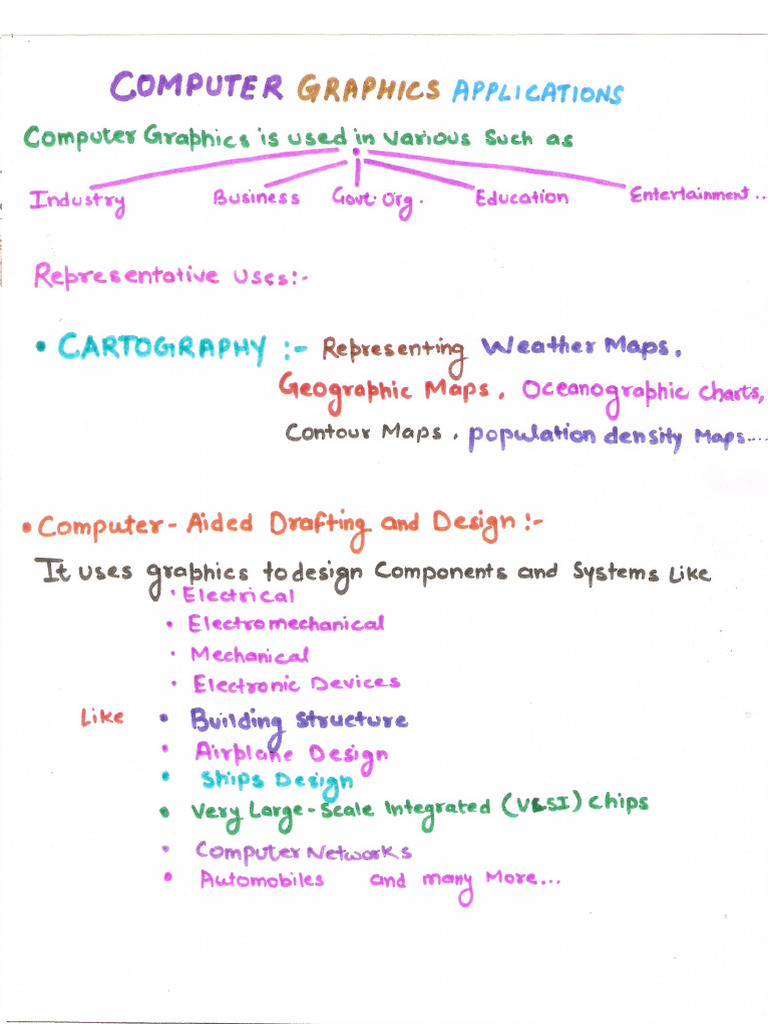 COMPUTER GRAPHICS APPLICATIONS
Computer Graphics is used in various Such as
Industry Business Govt. Org. Education Entertainment..
Representative uses:-
• CARTOGRAPHY :- Representing Weather Maps,
Geographic Maps, Oceanographic charts,
Contour Maps, population density Maps....
• Computer-Aided Drafting and Design :-
It uses graphics to design Components and Systems Like
• Electrical
• Electromechanical
• Mechanical
• Electronic Devices
Like • Building structure
• Airplane Design
• Ships Design
• Very Large-Scale Integrated (VLSI) chips
• Computer Networks
• Automobiles and many More...